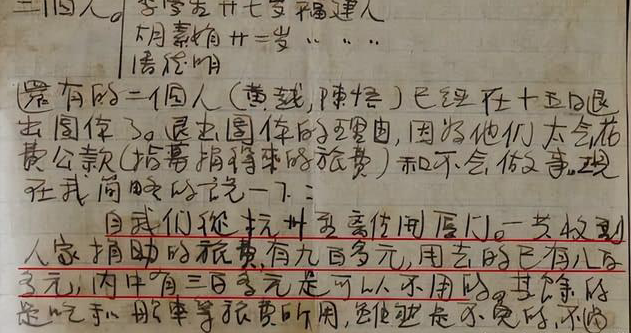 三個人。 廿七岁福建人
胡素 廿二岁 〃 〃
明
還有的二個人(黃越,陳悟)已經在十五日退
出團体了。退出團体的理由,因为他们太会花
費公款(指募捐得來的旅費)和不会做事。現
在我简略的说一下:
自我们從杭州 厦门。一共收到
人家捐助的旅費,有九百多元,用去的已有八百
多元,内中有三百多元是可以不用的。其餘的
是吃和船車等旅費所用, 是不免的,不